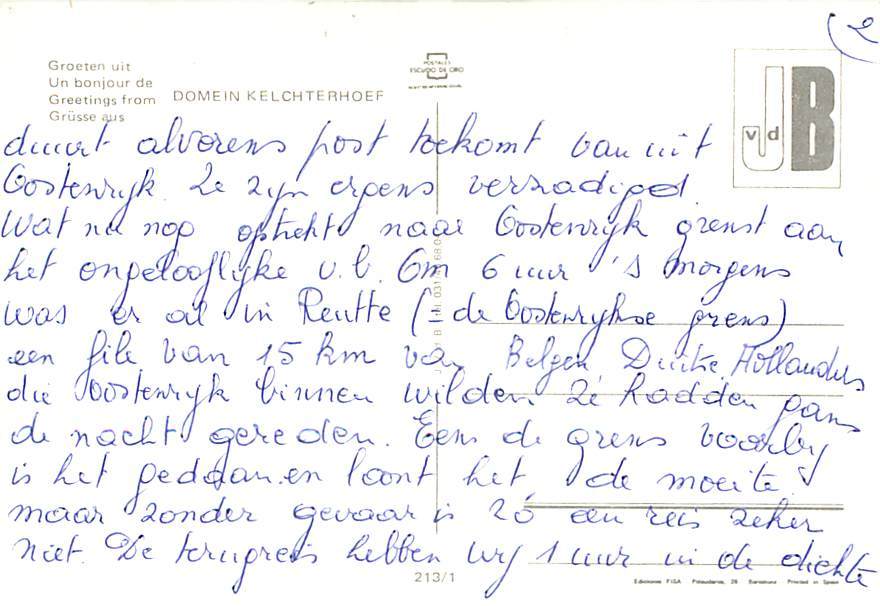 2
Groeten uit
Un bonjour de
Greetings from
Grüsse aus
DOMEIN KELCHTERHOEF
POSTALES
ESCUDO DE ORO
JB
v d
duurt alvorens post toekomt van uit
Oostenrijk. Ze zijn ergens verzadigd.
Wat nu nog optrekt naar Oostenrijk grenst aan
het ongelooflijke v.b. Om 6 uur 's morgens
was er al in Reutte (= de Oostenrijkse grens)
een file van 15 km van Belgen, Duitse, Hollanders
die Oostenrijk binnen wilden. Zé hadden gans
de nacht gereden. Eens de grens voorby
is het gedaan en loont het de moeite
maar zonder gevaar is zo een reis zeker
niet. De terugreis hebben wij 1 uur in de dichte
213/1
Ediciones FISA Palaudarias, 26 Barcelona Printed in Spain